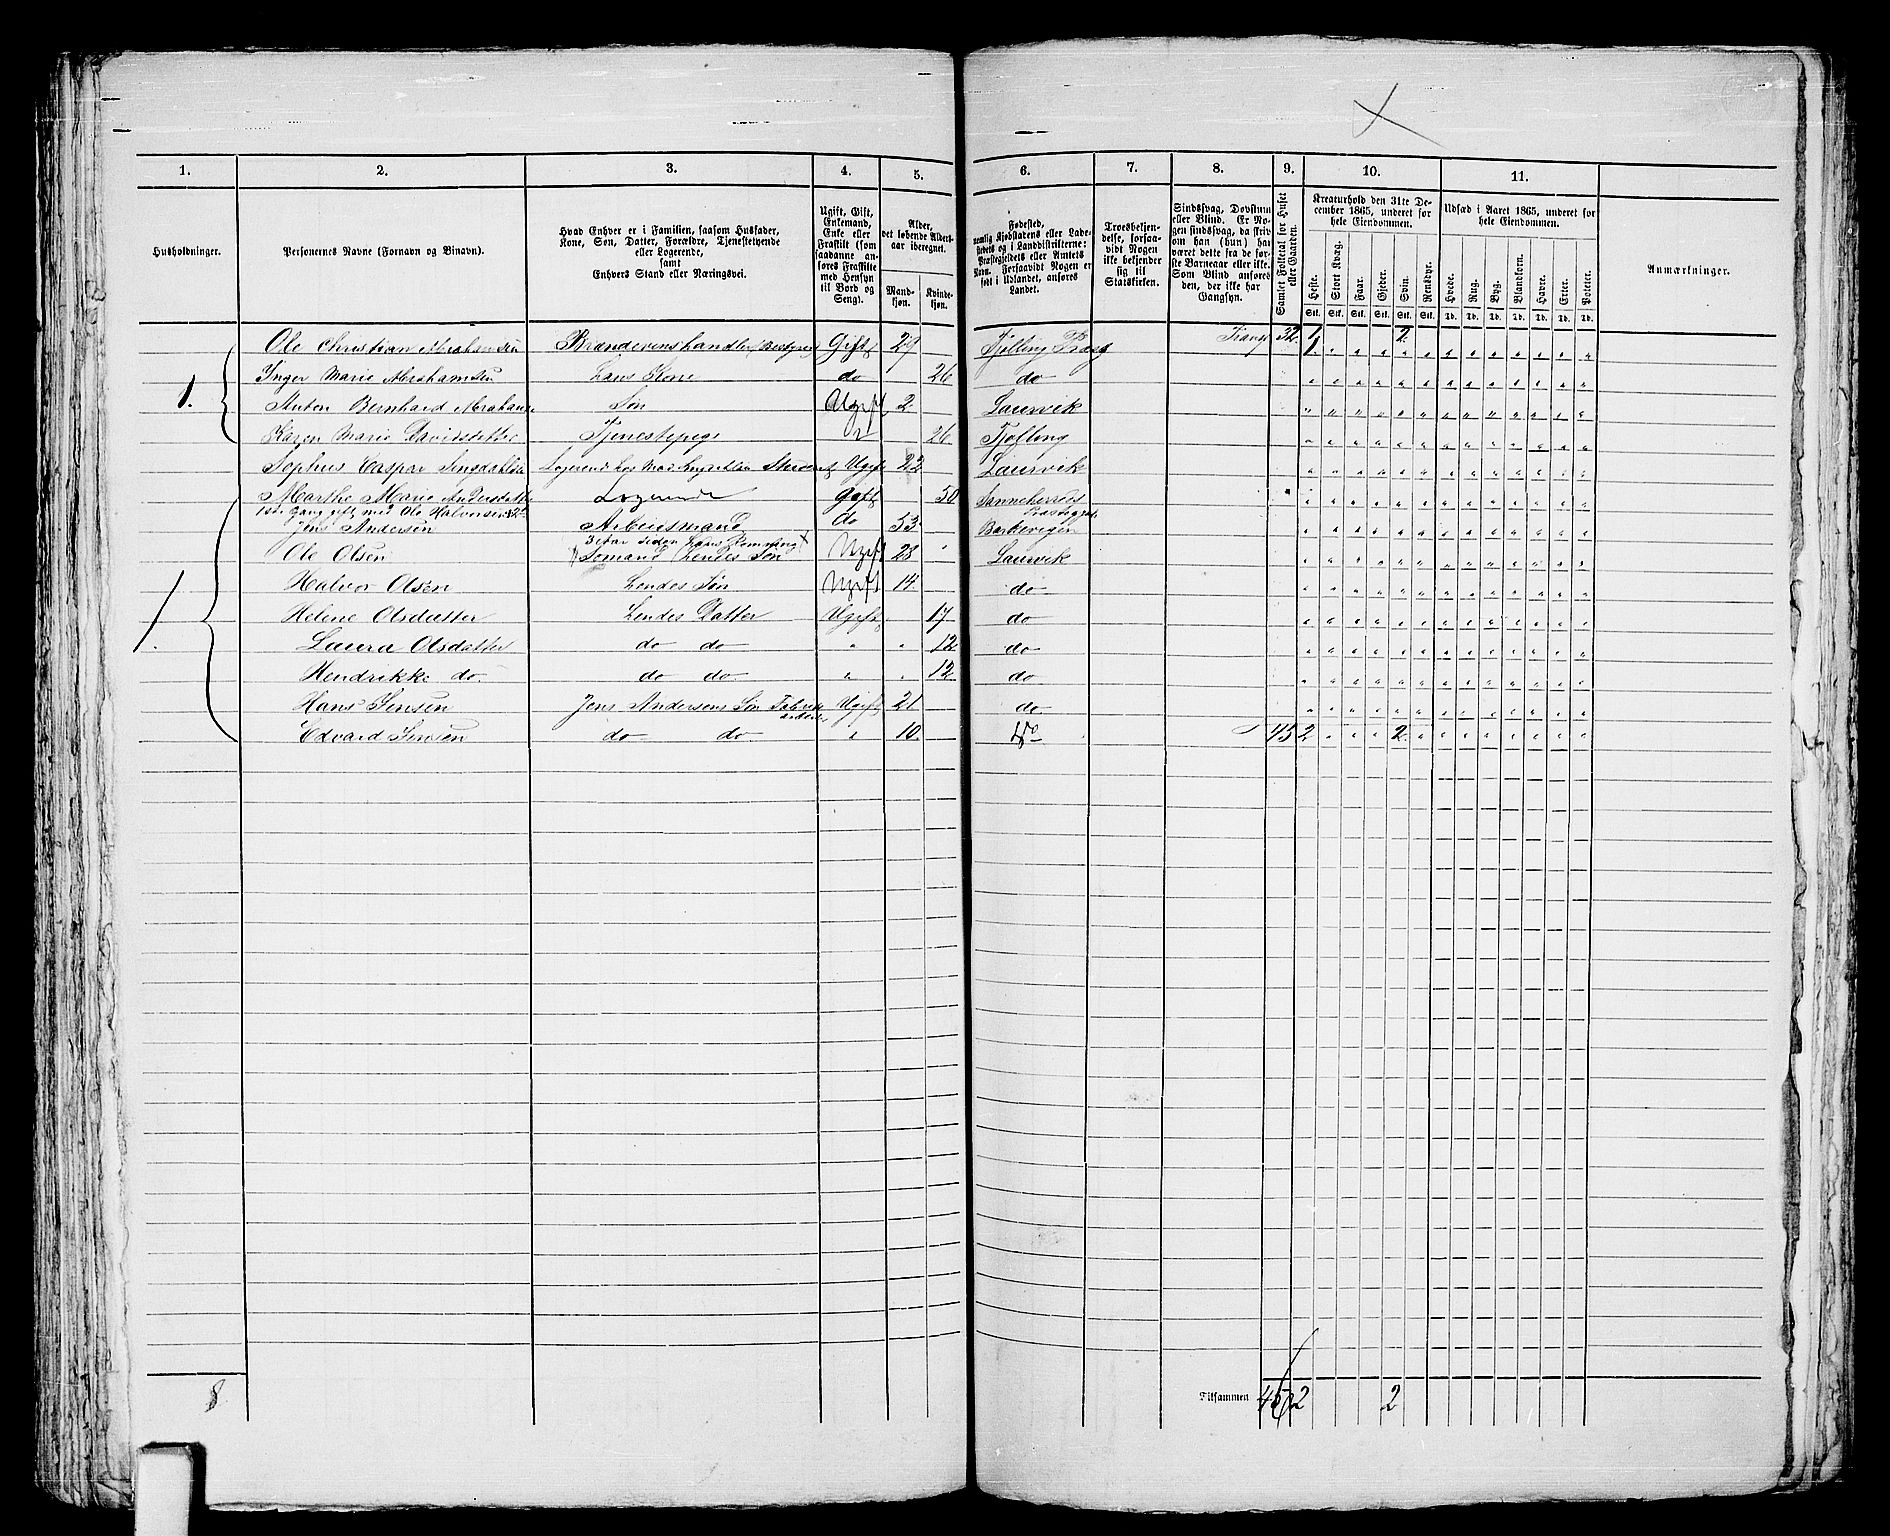 1. 2. 3. 4. 5. 6. 7. 8. 9. 10. 11.
Husholdninger.
Personernes Navne (Fornavn og Binavn).
Hvad Enhver er i Familien, saasom Husfader,
Kone, Søn, Datter, Forældre, Tjenestetyende
eller Logerende,
samt
Enhvers Stand eller Næringsvei.
Ugift, Gift,
Enkemand,
Enke eller
Fraskilt (som
saadanne an-
føres Fraskilte
med Hensyn
til Bord og
Seng).
Alder,
det løbende Alders-
aar iberegnet.
Mand-
kjøn.
Kvinde-
kjøn.
Fødested,
nemlig Kjøbstadens eller Lade-
stedets og i Landdistrikterne:
Præstegjeldets eller Amtets
Navn. Forsaavidt Nogen er
født i Udlandet, anføres
Landet.
Troesbekjen-
delse, forsaa-
vidt Nogen
ikke bekjender
sig til
Statskirken.
Sindssvag, Døvstum
eller Blind. Er No-
gen sindssvag, da skriv
om han (hun) har
været dette fra de før-
ste Barneaar eller ikke.
Som Blind anføres
den, der ikke har
Gangsyn.
Samlet Folketal for Huset
eller Gaarden.
Kreaturhold den 31te De-
cember 1865, underet for
hele Eiendommen.
Heste. Stort Kvæg. Faar. Gjeder. Svin. Rensdyr.
Stk. Stk. Stk. Stk. Stk. Stk.
Udsæd i Aaret 1865, underet for
hele Eiendommen.
Hvede. Rug. Byg. Blandkorn. Havre. Erter. Poteter.
Td. Td. Td. Td. Td. Td. Td.
Anmærkninger.
1. Ole Christian Abrahamsen Brændevinshandler Bestyrer Gift 29 Tjølling Præsg Transp 32 1 1 2
Inger Marie Abrahamsen hans Kone do 26 do
Anton Bernhard Abrahams Søn Ugift 2 Laurvik
Karen Marie Davidsdatter Tjenestepige 26 Tjølling
Sophus Caspar Logerende hos Ugift 22 Laurvik
1. Marthe Marie Andersdatter Logerende Gift 50 Sannekerreds
1ste Gang gift med Ole Halvorsen
Jens Andersen Arbeidsmand do 53 Barkevigen
Ole Olsen Sømand hendes Søn Ugift 23 Laurvik
Halvor Olsen hendes Søn Ugift 14. do
Helene Olsdatter hendes Datter Ugift 17 do
Laura Olsdatter do do " " 12 do
Hendrikke do. do do " " 12 do
Hans Jensen Jens Andersens Søn Ugift 21 do
Edvard Jensen do do " 10. do 45 2 2
8
Tilsammen 45 2 2